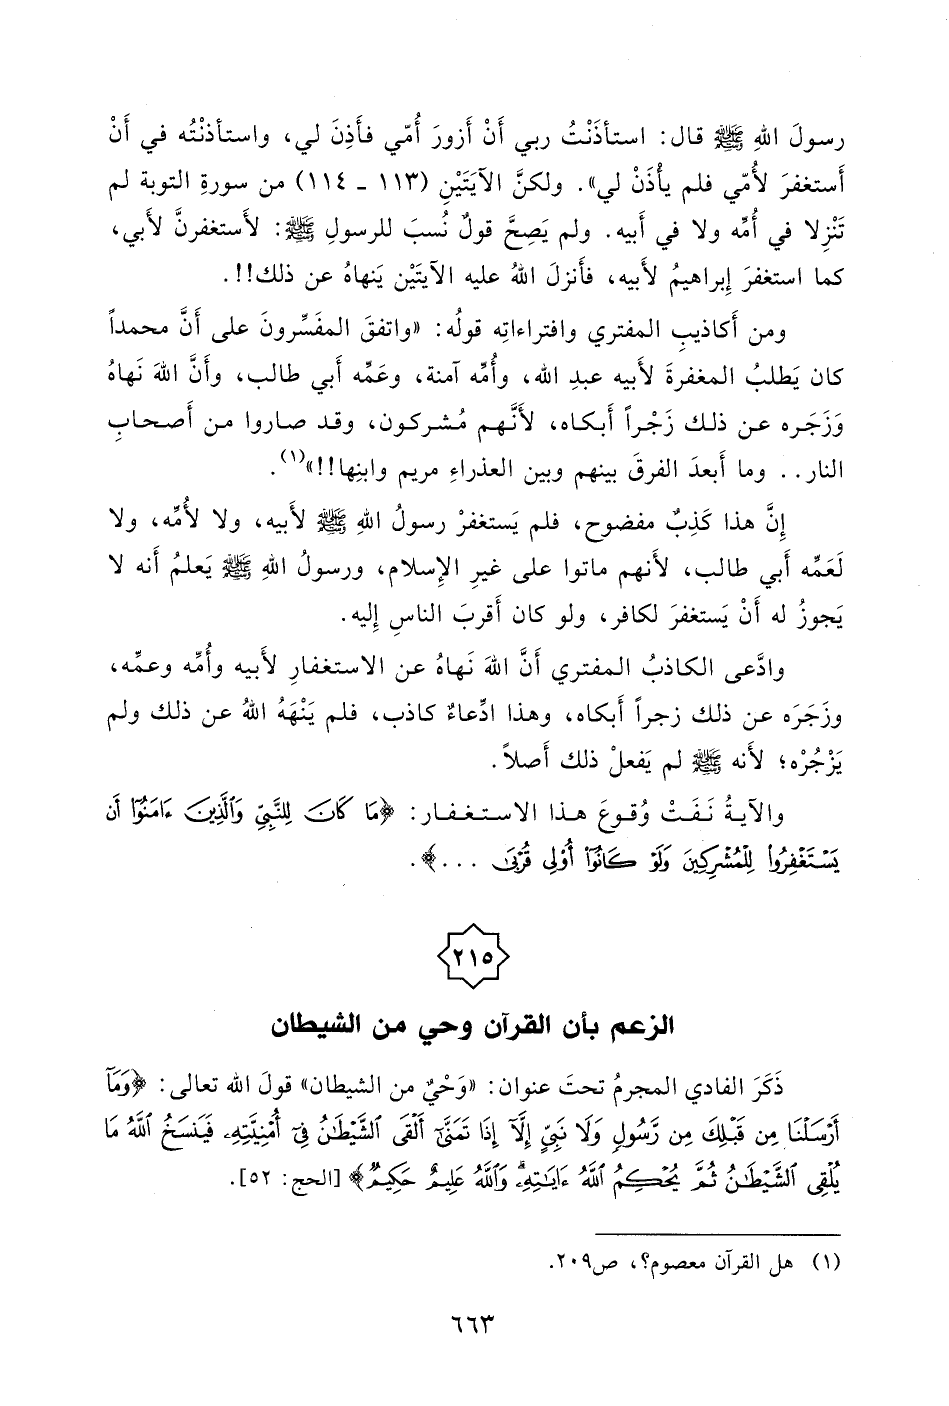 رسولَ اللهِ ﷺ قال: استأذَنْتُ ربي أَنْ أَزورَ أُمّي فأَذِنَ لي، واستأذنْتُه في أَنْ
أَستغفرَ لأُمّي فلم يأْذَنْ لي». ولكنَّ الآيَتَيْنِ (١١٣ ـ ١١٤) من سورةِ التوبة لم
تَنْزِلا في أُمِّه ولا في أبيه. ولم يَصِحَّ قولٌ نُسبَ للرسولِ ﷺ: لأَستغفرنَّ لأَبي،
كما استغفرَ إِبراهيمُ لأَبيه، فأَنزلَ اللهُ عليه الآيتَيْن يَنهاهُ عن ذلك!!.
ومن أَكاذيبِ المفتري وافتراءاتِه قولُه: «واتفقَ المفَسِّرونَ على أَنَّ محمداً
كان يَطلبُ المغفرةَ لأَبيه عبدِ الله، وأُمِّه آمنة، وعَمِّه أَبي طالب، وأَنَّ اللهَ نَهاهُ
وَزَجَره عن ذلك زَجْراً أَبكاه، لأَنَّهم مُشركون، وقد صاروا من أَصحابِ
النار.. وما أَبعدَ الفرقَ بينهم وبين العذراءِ مريم وابنِها!!»(١).
إِنَّ هذا كَذِبٌ مفضوح، فلم يَستغفرْ رسولُ اللهِ ﷺ لأَبيه، ولا لأُمِّه، ولا
لَعَمِّه أبي طالب، لأَنهم ماتوا على غيرِ الإِسلام، ورسولُ اللهِ ﷺ يَعلمُ أنه لا
يَجوزُ له أَنْ يَستغفرَ لكافر، ولو كان أَقربَ الناسِ إِليه.
وادَّعى الكاذبُ المفتري أَنَّ اللهَ نَهاهُ عن الاستغفارِ لأَبيه وأُمِّه وعمِّه،
وزَجَرَه عن ذلك زجراً أَبكاه، وهذا ادِّعاءٌ كاذب، فلم يَنْهَهُ اللهُ عن ذلك ولم
يَزْجُرْه؛ لأَنه ﷺ لم يَفعلْ ذلك أَصلاً.
والآيةُ نَفَتْ وُقوعَ هذا الاستغفار: ﴿مَا كَانَ لِلنَّبِيِّ وَٱلَّذِينَ ءَامَنُوٓا۟ أَن
يَسْتَغْفِرُوا۟ لِلْمُشْرِكِينَ وَلَوْ كَانُوٓا۟ أُو۟لِى قُرْبَىٰ ...﴾.
٢١٥
الزعم بأن القرآن وحي من الشيطان
ذَكَرَ الفادي المجرمُ تحتَ عنوان: «وَحْيٌ من الشيطان» قولَ الله تعالى: ﴿وَمَآ
أَرْسَلْنَا مِن قَبْلِكَ مِن رَّسُولٍ وَلَا نَبِيٍّ إِلَّآ إِذَا تَمَنَّىٰٓ أَلْقَى ٱلشَّيْطَٰنُ فِىٓ أُمْنِيَّتِهِۦ فَيَنسَخُ ٱللَّهُ مَا
يُلْقِى ٱلشَّيْطَٰنُ ثُمَّ يُحْكِمُ ٱللَّهُ ءَايَٰتِهِۦ ۗ وَٱللَّهُ عَلِيمٌ حَكِيمٌ﴾ [الحج: ٥٢].
(١) هل القرآن معصوم؟، ص٢٠٩.
٦٦٣